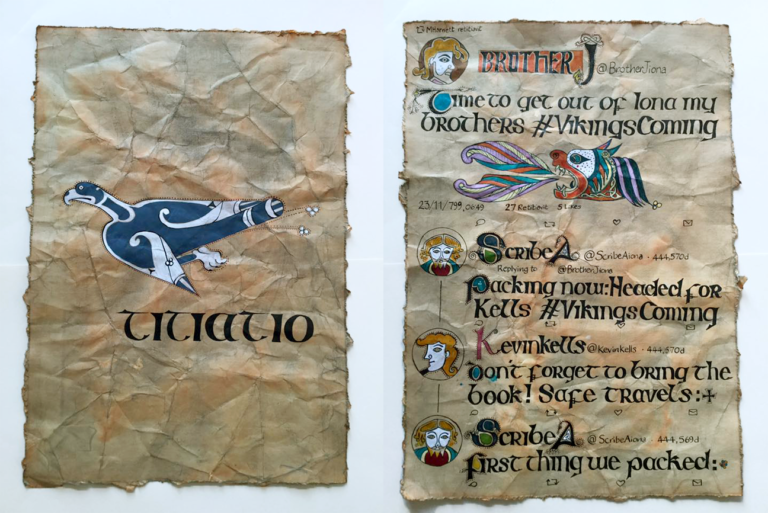 titiatio
Mnemett retitiavit
Brother J @BrotherJiona
Time to get out of Iona my
brothers #VikingsComing
23/11/799, 06:49 27 Retitiavit 5 Likes
ScribeA @ScribeAiona · 444,570d
Replying to @BrotherJiona
Packing now: Headed for
Kells #VikingsComing
Kevinkells @Kevinkells · 444,570d
Don't forget to bring the
book! Safe travels :+
ScribeA @ScribeAiona · 444,569d
First thing we packed :+